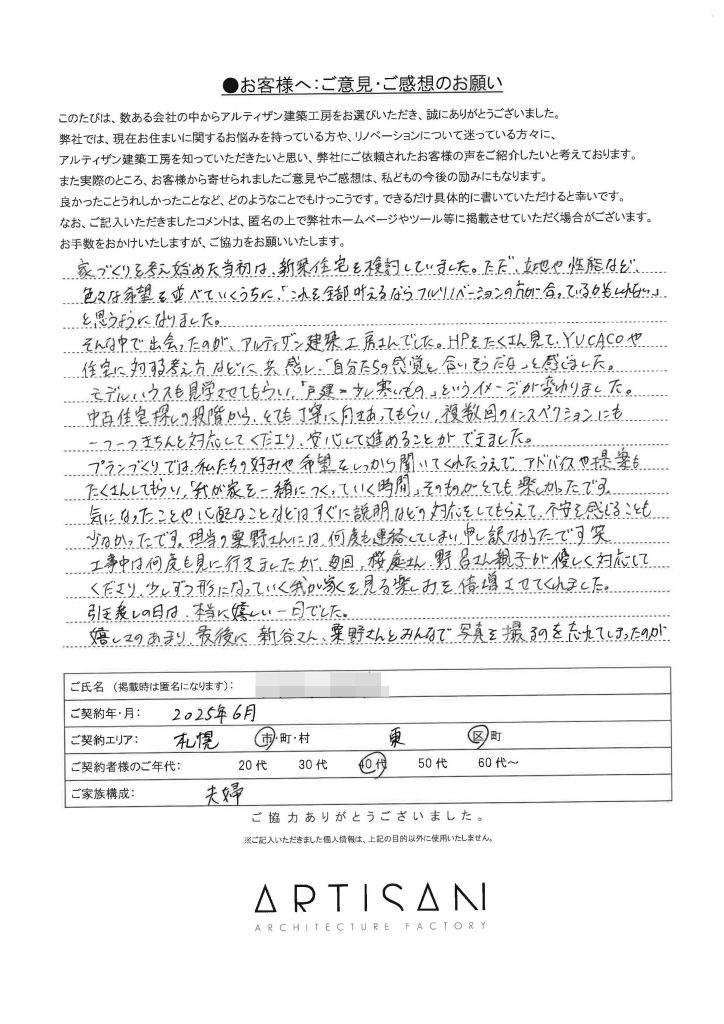 ●お客様へ:ご意見・ご感想のお願い
このたびは、数ある会社の中からアルティザン建築工房をお選びいただき、誠にありがとうございました。
弊社では、現在お住まいに関するお悩みを持っている方や、リノベーションについて迷っている方々に、
アルティザン建築工房を知っていただきたいと思い、弊社にご依頼されたお客様の声をご紹介したいと考えております。
また実際のところ、お客様から寄せられましたご意見やご感想は、私どもの今後の励みにもなります。
良かったことうれしかったことなど、どのようなことでもけっこうです。できるだけ具体的に書いていただけると幸いです。
なお、ご記入いただきましたコメントは、匿名の上で弊社ホームページやツール等に掲載させていただく場合がございます。
お手数をおかけいたしますが、ご協力をお願いいたします。
家づくりを考え始めた当初は、新築住宅を検討していました。ただ、立地や性能など、
色々な希望を並べていくうちに、「これを全部叶えるならフルリノベーションの方が合っているかもしれない」
と思うようになりました。
そんな中で出会ったのが、アルティザン建築工房さんでした。HPをたくさん見て、YUCACOや
住宅に対する考え方などに共感し、「自分たちの感覚と合いそうだな」と感じました。
モデルハウスも見学させてもらい、「戸建=少し寒いもの」というイメージが変わりました。
中古住宅探しの段階から、とても丁寧に向きあってもらい、複数回のインスペクションにも
一つ一つきちんと対応してくださり、安心して進めることができました。
プランづくりでは、私たちの好みや希望をしっかり聞いてくれたうえで、アドバイスや提案も
たくさんしてもらい、「我が家を一緒につくっていく時間」そのものがとても楽しかったです。
気になったことや心配なことなどはすぐに説明などの対応をしてもらえて、不安を感じることも
少なかったです。担当の粟野さんには、何度も連絡してしまい、申し訳なかったです笑
工事中は何度も見に行きましたが、毎回、桜庭さん、野呂さん親子が優しく対応して
くださり、少しずつ形になっていく我が家を見る楽しみを倍増させてくれました。
引き渡しの日は、本当に嬉しい一日でした。
嬉しさのあまり、最後に、新谷さん、粟野さんとみんなで写真を撮るのを忘れてしまったのが
ご氏名 (掲載時は匿名になります):
ご契約年・月: 2025年6月
ご契約エリア: 札幌 市・町・村 東 区 町
ご契約者様のご年代: 20代 30代 40代 50代 60代～
ご家族構成: 夫婦
ご協力ありがとうございました。
※ご記入いただきました個人情報は、上記の目的以外に使用いたしません。
ARTISAN
ARCHITECTURE FACTORY